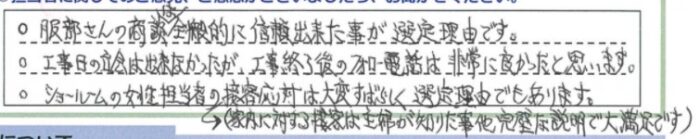 ○ 服部さんの商談全般的に信頼出来た事が選定理由です。
○ 工事日の立会は出来なかったが、工事終了後のフォロー電話は非常に良かったと思います。
○ ショールームの女性担当者の接客応対は大変すばらしく、選定理由でもあります。
→(家内に対する接客は主婦が知りた事他完璧な説明で大満足です)